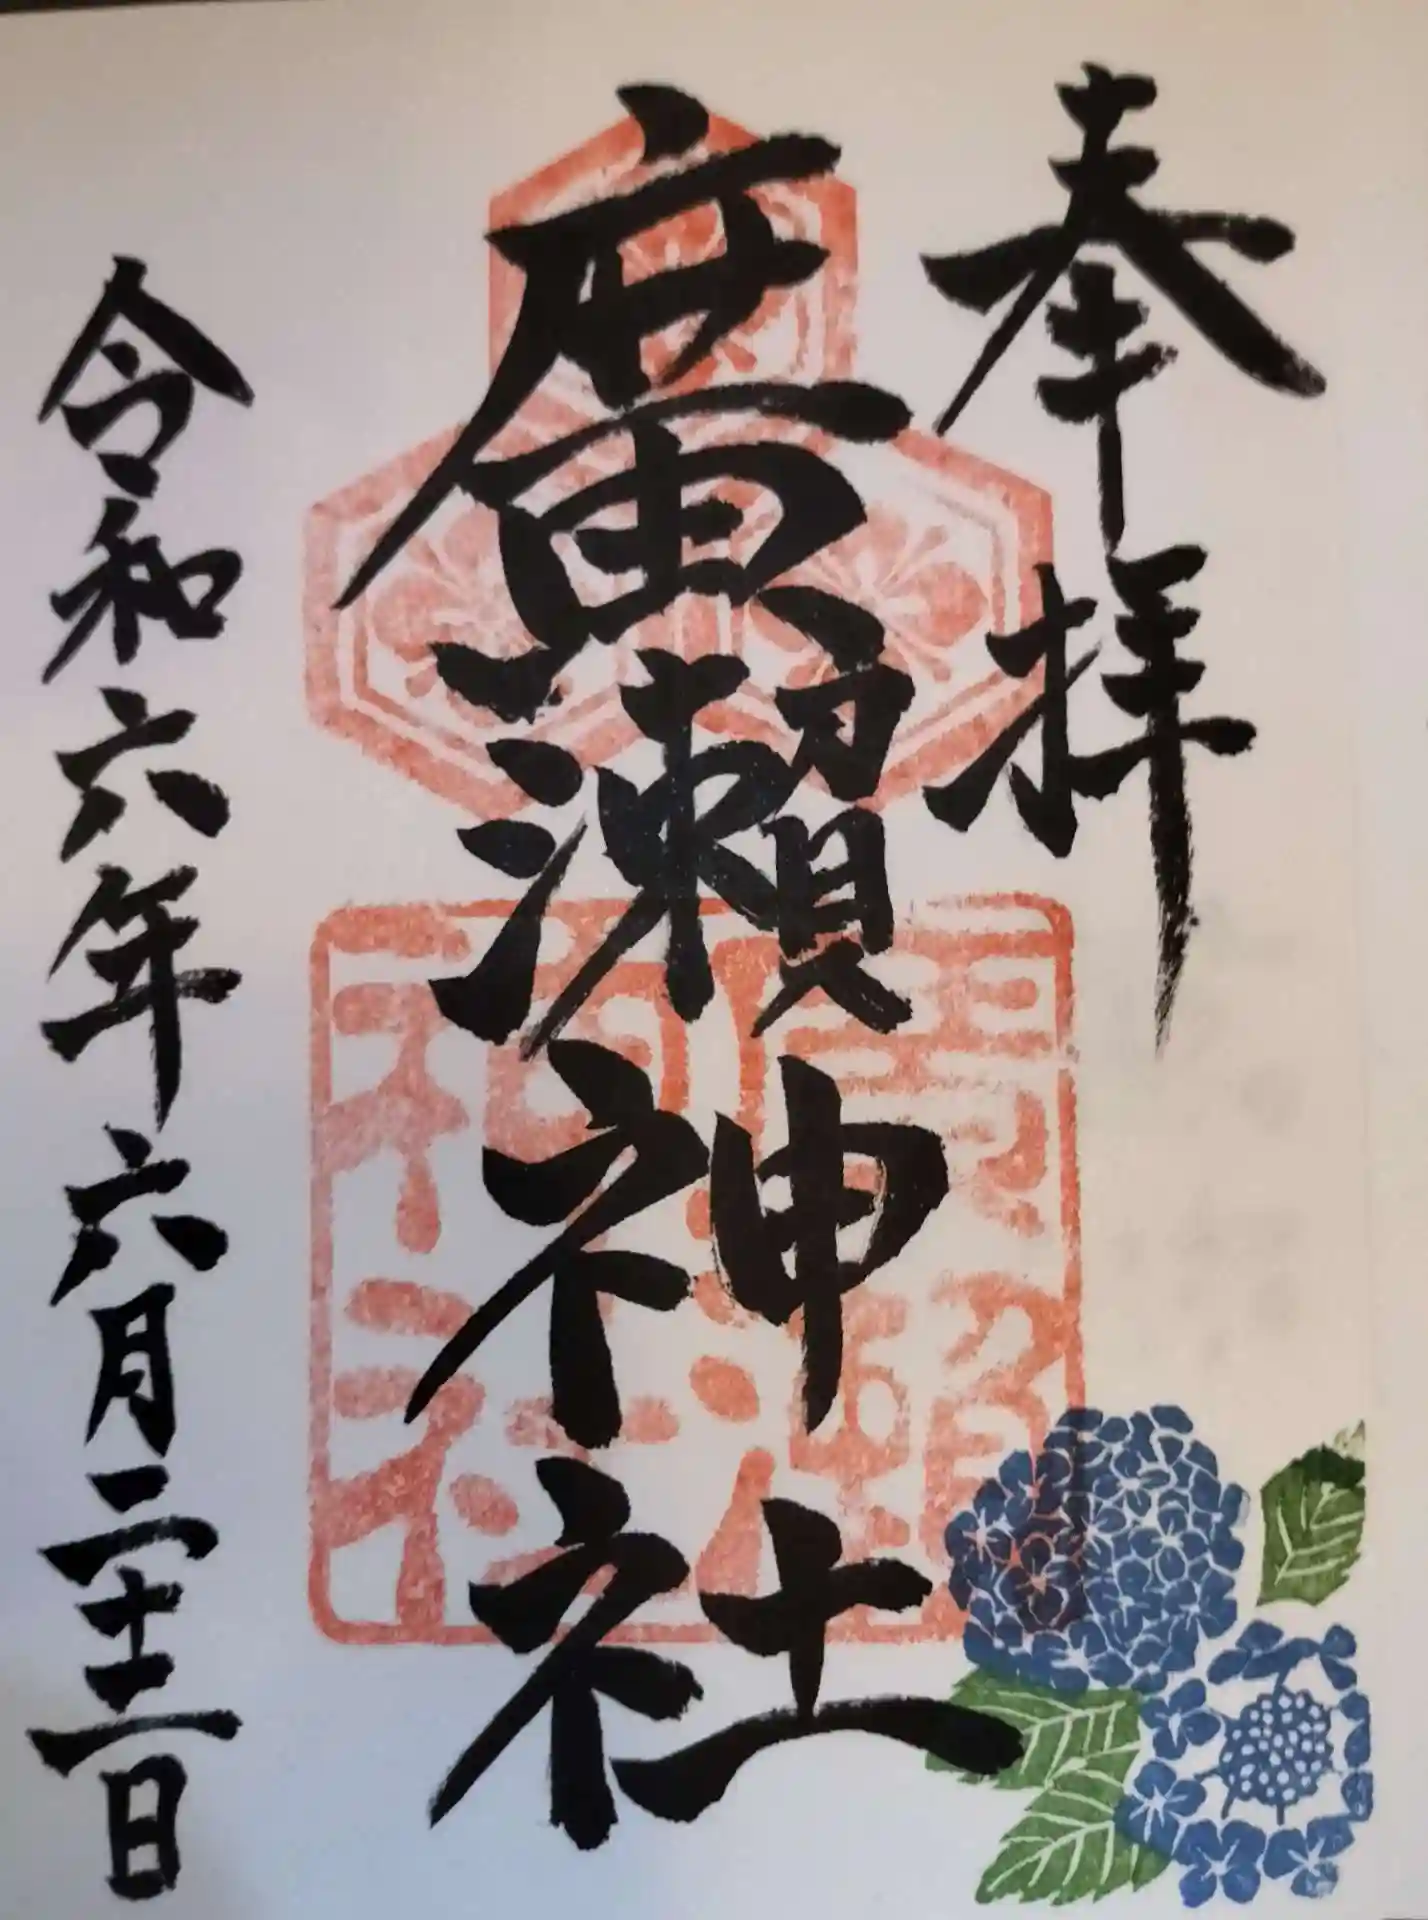 奉拝
廣瀬神社
令和六年六月二十二日
廣瀬
神社